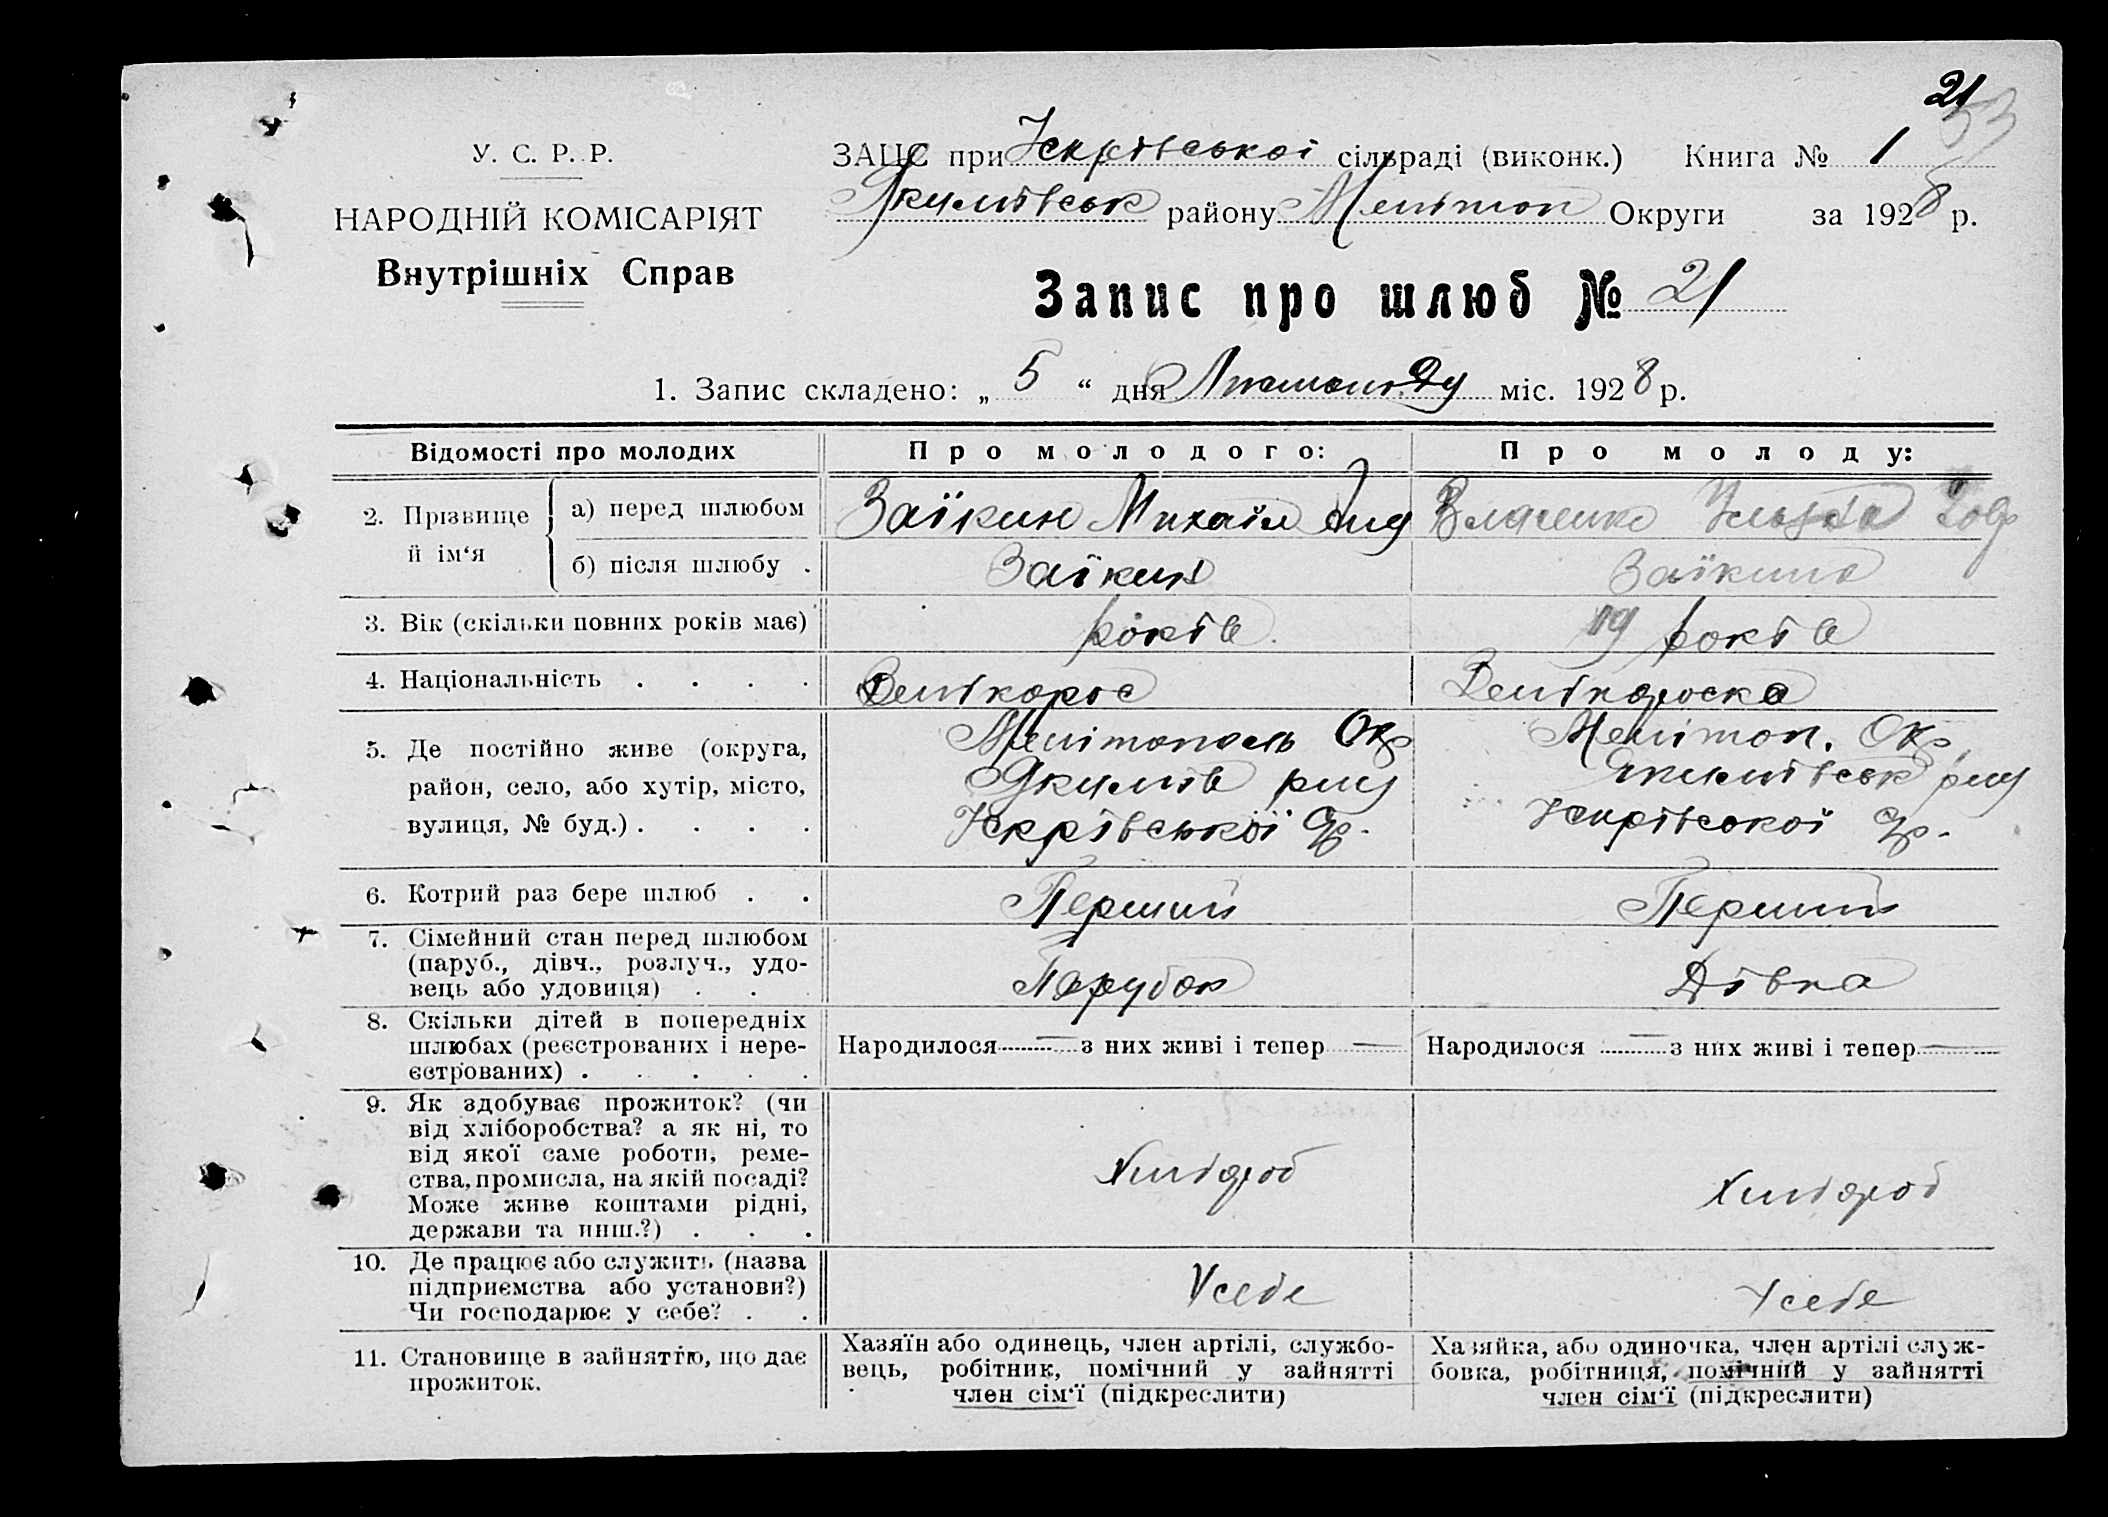 21
53
У. С. Р. Р.
НАРОДНІЙ КОМІСАРІЯТ
Внутрішніх Справ
ЗАЦС при Іскрівської сільраді (виконк.) Книга № 1
Якимівськ району Мелітоп Округи за 1928 р.
Запис про шлюб № 21
1. Запис складено: „ 5 “ дня міс. 1928 р.
Відомості про молодих
Про молодого:
Про молоду:
2. Прізвище й ім‘я
а) перед шлюбом
Заїкин Михаіл
б) після шлюбу .
Заїкин
Заїкина
3. Вік (скільки повних років має)
років
19 років
4. Національність . . . .
Велікорос
Велікороска
5. Де постійно живе (округа,
район, село, або хутір, місто,
вулиця, № буд.) . . . .
Мелітополь Окр
Якимів рну
Іскрівської
Мелітоп. Окр,
Якимівськ рну
Іскрівської
6. Котрий раз бере шлюб . .
Перший
Перший
7. Сімейний стан перед шлюбом
(паруб., дівч., розлуч., удо-
вець або удовиця) . .
Парубок
Дівка
8. Скільки дітей в попередніх
шлюбах (реєстрованих і нере-
єстрованих) . . . . .
Народилося — з них живі і тепер —
Народилося — з них живі і тепер —
9. Як здобуває прожиток? (чи
від хліборобства? а як ні, то
від якої саме роботи, реме-
ства, промисла, на якій посаді?
Може живе коштами рідні,
держави та инш.?) . . .
Хлібороб
Хлібороб
10. Де працює або служить (назва
підприємства або установи?)
Чи господарює у себе? . .
У себе
У себе
11. Становище в зайняттю, що дає
прожиток.
Хазяїн або одинець, член артілі, службо-
вець, робітник, помічний у зайнятті
член сім‘ї (підкреслити)
Хазяйка, або одиночка, член артілі служ-
бовка, робітниця, помічний у зайнятті
член сім‘ї (підкреслити)